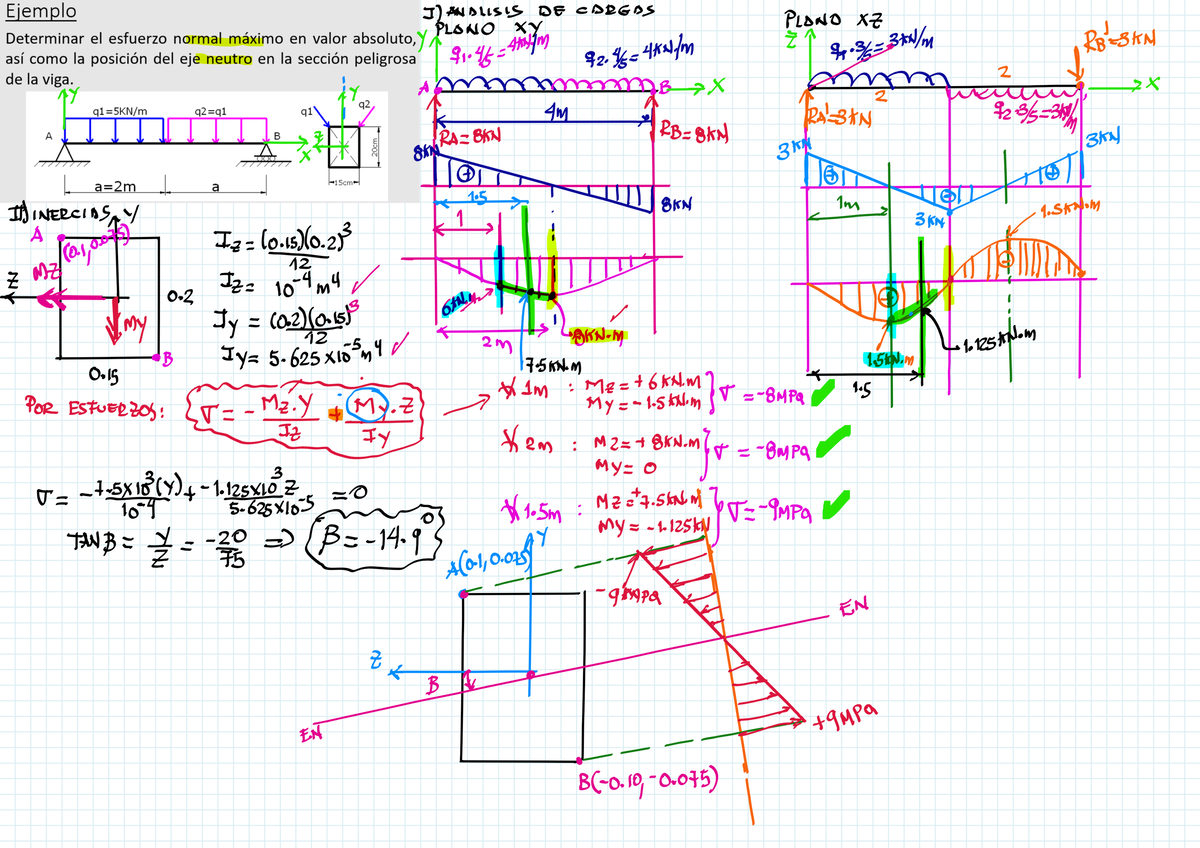 Ejemplo
Determinar el esfuerzo normal máximo en valor absoluto,
así como la posición del eje neutro en la sección peligrosa
de la viga.
Y
q1=5KN/m
q2=q1
A
B
X
a=2m
a
q1
Y
q2
Z
20cm
15cm
I) ANALISIS DE CARGAS
PLANO XY
Y
q1.4/5=4KN/m
q2.4/5=4KN/m
A
B
X
4m
RA=8KN
RB=8KN
8KN
+
8KN
1.5
1
6KN.m
8KN.m
2m
7.5KN.m
PLANO XZ
Z
q1.3/5=3KN/m
RB'=3KN
2
2
X
RA'=3KN
q2 3/5=3KN/m
3KN
3KN
+
+
1m
3KN
1.5KN.m
+
1.5KN.m
1.125KN.m
1.5
II) INERCIAS
Y
A
(0.1,0.075)
Z
MZ
MY
0.2
B
0.15
IZ = (0.15)(0.2)³
12
IZ = 10⁻⁴ m⁴
IY = (0.2)(0.15)³
12
IY = 5.625X10⁻⁵ m⁴
POR ESFUERZOS:
σ = - MZ.Y + MY.Z
IZ IY
1m : MZ=+6KN.m
MY=-1.5KN.m
σ =-8MPa
2m : MZ=+8KN.m
MY=0
σ =-8MPa
1.5m : MZ=+7.5KN.m
MY=-1.125KN
σ=-9MPa
σ = -7.5X10³(Y) + -1.125X10³Z =0
10⁻⁴ 5.625X10⁻⁵
TANB = Y = -20 ⇒ β=-14.9°
Z 75
A(0.1,0.075)
Y
-9MPa
EN
Z
B
EN
+9MPa
B(-0.10,-0.075)